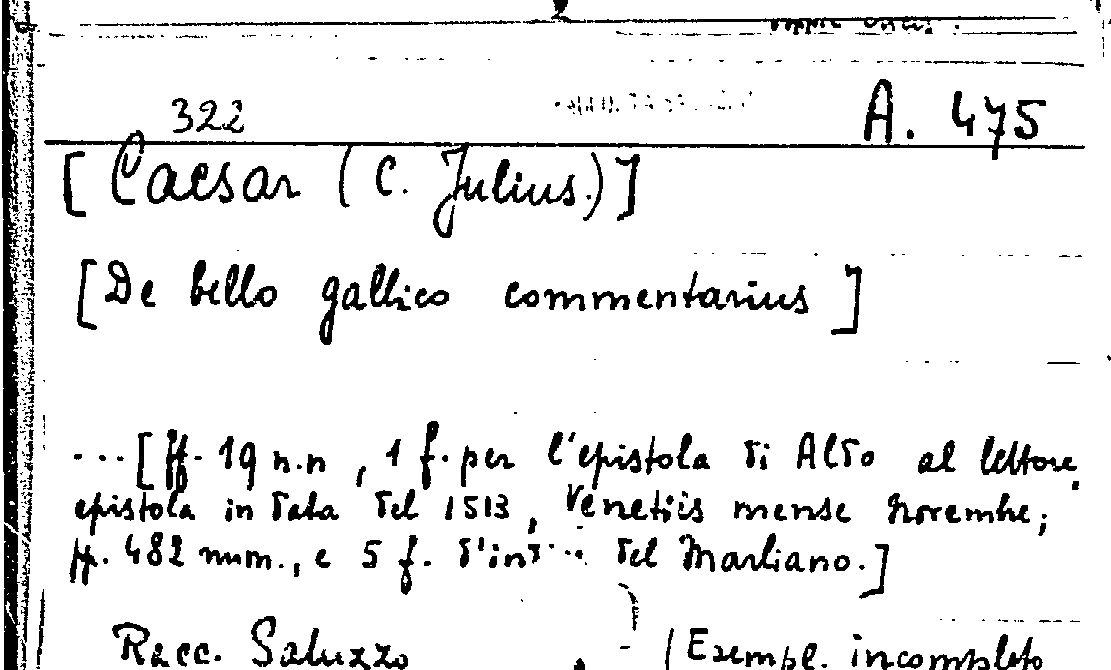 322 A. 475
[Caesar (C. Julius.)]
[De bello gallico commentarius]
...[ff. 19 n.n, 1 f. per l'epistola di Aldo al lettore,
epistola in data del 1513, Venetiis mense novembre;
ff. 482 num., e 5 f. d'ind... del Marliano.]
Racc. Saluzzo (Esempl. incompleto